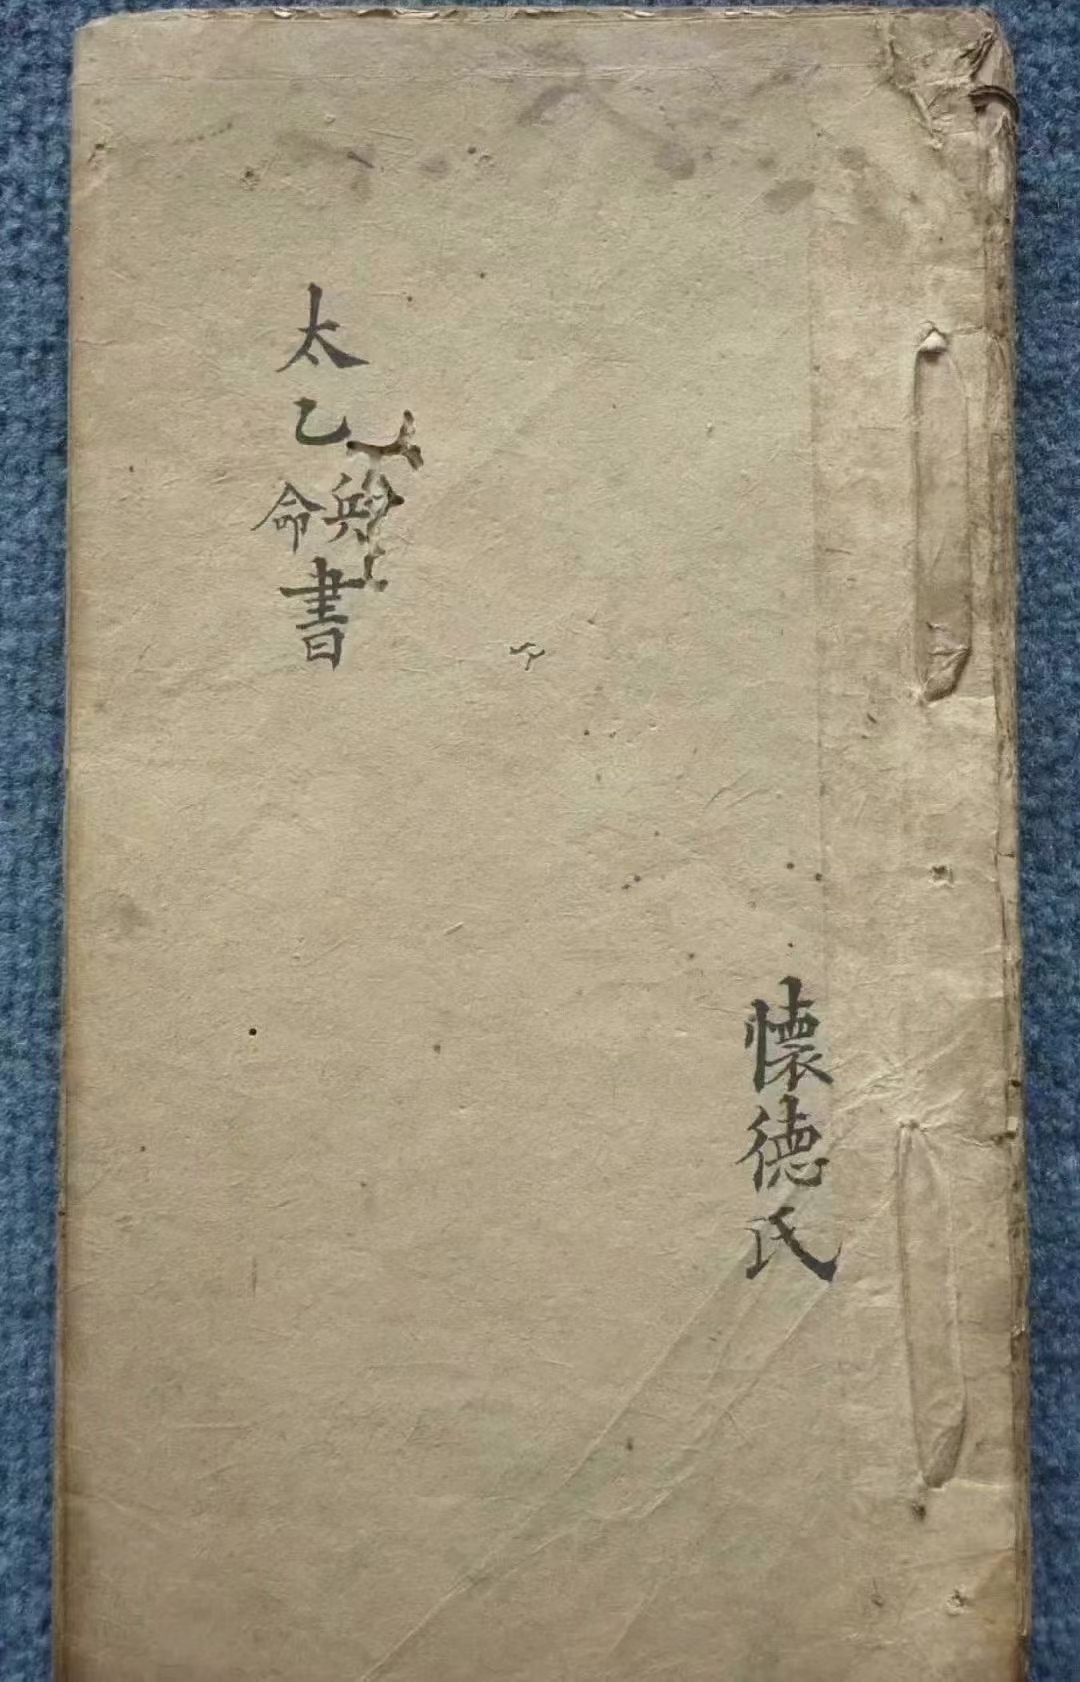 懷德氏
太乙兵命書